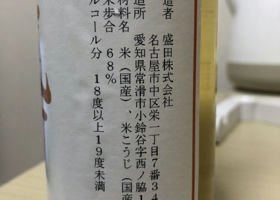 造者 盛田株式会社
名古屋市中区栄一丁目7番34
造所 愛知県常滑市小鈴谷字西ノ脇1
材料名 米(国産)、米こうじ(国産
米歩合 68%
ルコール分 18度以上19度未満